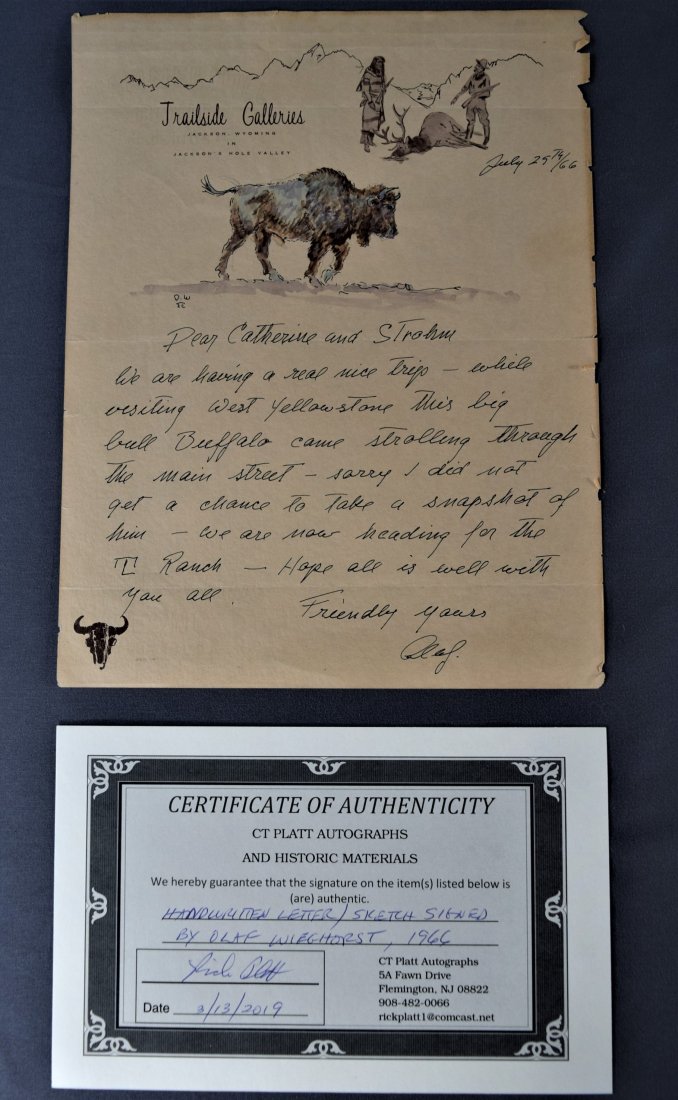 Trailside Galleries
JACKSON, WYOMING
IN
JACKSON'S HOLE VALLEY
July 29TH/66
O.W
Dear Catherine and Strohm
We are having a real nice trip – while
visiting West Yellowstone this big
bull Buffalo came strolling through
the main street – sorry I did not
get a chance to take a snapshot of
him – we are now heading for the
Ranch – Hope all is well with
you all.
Friendly yours
Olaf.
CERTIFICATE OF AUTHENTICITY
CT PLATT AUTOGRAPHS
AND HISTORIC MATERIALS
We hereby guarantee that the signature on the item(s) listed below is
(are) authentic.
HANDWRITTEN LETTER/SKETCH SIGNED
BY OLAF WIEGHORST, 1966
CT Platt Autographs
5A Fawn Drive
Flemington, NJ 08822
908-482-0066
rickplatt1@comcast.net
Date 3/13/2019